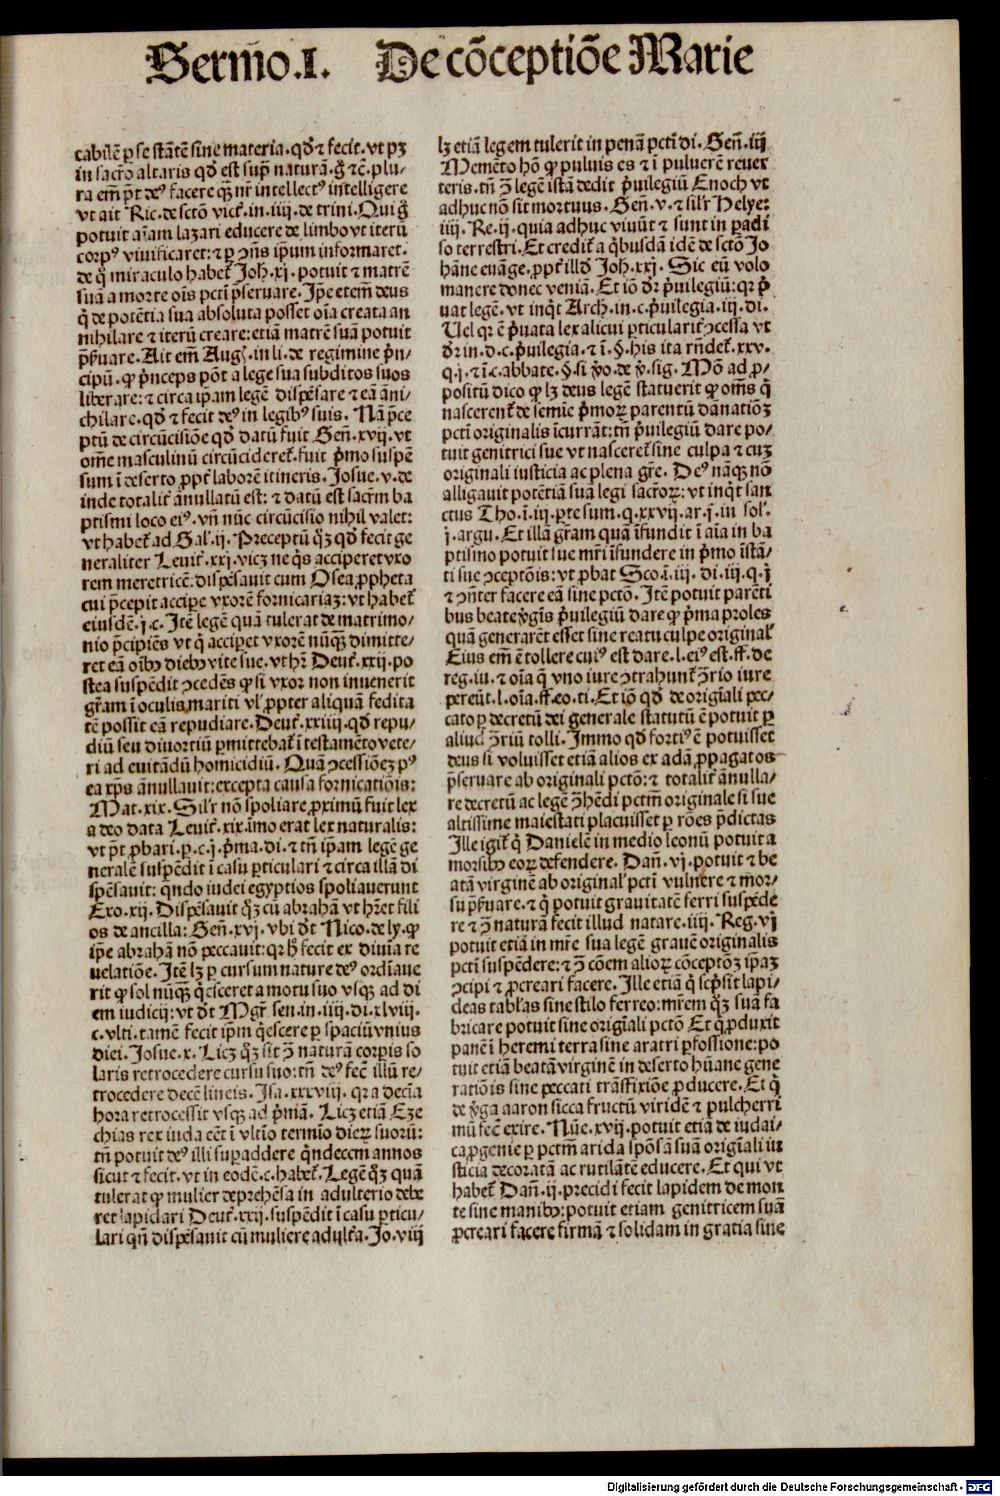 Sermo.I. De cōceptiōe Marie
cabilē ꝑ se stātē sine materia. qd̄ ⁊ fecit. vt pꝫ
in sacr̄o altaris qd̄ est supra naturā. ḡ ⁊c̄. plu-
ra em̄ pt̄ deꝰ facere qꝫ nr̄ intellectꝰ intelligere
vt ait Ric. de scto vict̄. in .iiii. de trini. Qui ḡ
potuit aīam lazari educere de limbo vt iterū
corpꝰ viuificaret: ⁊ ꝑ ↄn̄s ip̄um informaret.
de q̊ miraculo habet̄ Joh. xj. potuit ⁊ matrē
suā a morte oīs pcti p̄seruare. Ip̄e etem̄ deus
q̇ de potētia sua absoluta posset oīa creata an
nihilare ⁊ iterū creare: etiā matrē suā potuit
p̄ẜuare. Ait em̄ Augꝰ. in li. de regimine p̄n-
cipū. ꝙ p̄nceps pōt a lege sua subditos suos
liberare: ⁊ circa ip̄am legē dispēsare ⁊ eā āni-
chilare. qd̄ ⁊ fecit deꝰ in legibꝰ suis. Nā p̄ce
ptū de circūcisiōe qd̄ datū fuit Gen̄. xvij. vt
om̄e masculinū circūcideret̄. fuit p̄mo suspē
sum ī deserto ꝓpt̄ laborē itineris. Josue. v. de
inde totalit̄ ānullatū est: ⁊ datū est sacr̄m ba
ptismi loco eiꝰ. vn̄ nūc circūcisio nihil valet:
vt habet̄ ad Gal̄. ij. Preceptū qꝫ qd̄ fecit ge
neraliter Leuit̄. xxj. vicꝫ ne q̇s acciperet vxo
rem meretricē: dispēsauit cum Osea ꝓpheta
cui p̄cepit accipe vxorē fornicariaꝫ: vt habet̄
eiusdē. j. c. Itē legē quā tulerat de matrimo-
nio p̄cipiēs vt q̇ acciꝑet vxorē nūqꝫ dimitte-
ret eā oībꝫ diebꝫ vite sue. vt hr̄ Deut̄. xxij. po
stea suspēdit ↄcedēs ꝙ si vxor non inuenerit
gr̄am ī oculis mariti vl̓ ꝓpter aliquā fedita
tē possit eā repudiare. Deut̄. xxiiij. qd̄ repu-
diū seu diuortiū ꝑmittebat̄ ī testamēto vete-
ri ad euitādū homicidiū. Quā ↄcessiōeꝫ pꝰ
ea xp̄s ānullauit: excepta causa fornicatiōis:
Mat. xix. Sil̓r nō spoliare ꝓximū fuit lex
a deo data Leuit̄. xix. īmo erat lex naturalis:
vt pt̄ ꝓbari. ꝑ. c. j. p̄ma. di. ⁊ tn̄ ip̄am legē ge
neralē suspēdit ī casu ꝑticulari ⁊ circa illā di
spēsauit: qn̄do iudei egyptios spoliauerunt
Exo. xij. Dispēsauit qꝫ cū abrahā vt hr̄et fili
os de ancilla: Gen̄. xvj. vbi dt̄ Nico. de ly. ꝙ
ip̄e abrahā nō peccauit: qꝛ h̄ fecit ex diuīa re
uelatiōe. Itē lꝫ ꝑ cursum nature deꝰ ordīaue
rit ꝙ sol nūqꝫ q̇esceret a motu suo vsqꝫ ad di
em iudicij: vt dt̄ Mgr̄ sen. in .iiij. di. xlviij.
c. vlti. tamē fecit ip̄m q̇escere ꝑ spaciū vnius
diei. Josue. x. Licꝫ qꝫ sit ↄ̄ naturā corpis so
laris retrocedere cursu suo: tn̄ deꝰ fec̄ illū re-
trocedere decē lineis. Isa. xxxviij. qꝛ a decīa
hora retrocessit vsqꝫ ad p̄mā. Licꝫ etiā Eze
chias rex iuda eēt ī vltīo termīo dieꝝ suorū:
tn̄ potuit deꝰ illi suꝑaddere qn̄decim annos
sicut ⁊ fecit. vt in eodē. c. habet̄. Legē qꝫ quā
tulerat ꝙ mulier dep̄hēsa in adulterio debe
ret lapidari Deut̄. xxij. suspēdit ī casu ꝑticu-
lari qn̄ dispēsauit cū muliere adult̄a. Jo. viij
lꝫ etiā legem tulerit in penā pcti di. Gen̄. iij
Memēto hō ꝙ puluis es ⁊ ī puluerē reuer
teris. tn̄ ↄ̄ legē istā dedit p̄uilegiū Enoch vt
adhuc nō sit mortuus. Gen̄. v. ⁊ sil̓r Helye:
iiij. Re. ij. quia adhuc viuūt ⁊ sunt in ꝑadi
so terrestri. Et credit̄ a q̇busdā idē de scto Jo
hāne euāge. ꝓpt̄ illd̄ Joh. xxj. Sic eū volo
manere donec veniā. Et iō dr̄ p̄uilegiū: qꝛ p̄
uat legē. vt inq̇t Arch. in. c. p̄uilegia. iij. di.
Uel qꝛ ē p̄uata lex alicui ꝑticularit̄ ↄcessa vt
dr̄ in. d. c. p̄uilegia. ⁊ ī. §. his ita rn̄det̄. xxv.
q. j. ⁊ ī c. abbate. §. si ꝟo. de ꝟ. sig. Mō ad ꝓ-
positū dico ꝙ lꝫ deus legē statuerit ꝙ om̄s q̇
nascerent̄ de semīe p̄moꝝ parentū dānatiōꝫ
pcti originalis īcurrāt: tn̄ p̄uilegiū dare po-
tuit genitrici sue vt nasceret̄ sine culpa ⁊ cuꝫ
originali iusticia ac plena gr̄e. Deꝰ nāqꝫ nō
alligauit potētiā suā legi sacr̄oꝝ: vt inq̇t san
ctus Tho. ī. iij. ꝑte sum. q. xxvij. ar. j. in sol̓.
j. argu. Et illā gr̄am quā īfundit ī aīa in ba
ptismo potuit sue mr̄i īfundere in p̄mo īstā-
ti sue ↄceptōis: vt ꝓbat Sco. ī. iij. di. iij. q. j
⁊ ↄn̄ter facere eā sine pctō. Itē potuit parēti
bus beate ꝟgīs p̄uilegiū dare ꝙ p̄ma proles
quā generarēt esset sine reatu culpe original̓
Eius em̄ ē tollere cuiꝰ est dare. l. eiꝰ est. ff. de
reg. iu. ⁊ oīa q̄ vno iure ↄtrahunt̄ ↄ̄rio iure
pereūt. l. oīa. ff. eo. ti. Et iō qd̄ de origīali pec-
cato ꝑ decretū dei generale statutū ē potuit ꝑ
aliud ↄ̄riū tolli. Immo qd̄ fortiꝰ ē potuisset
deus si voluisset etiā alios ex adā ꝓpagatos
p̄seruare ab originali pctō: ⁊ totalit̄ ānulla-
re decretū ac legē ↄ̄hēdi pctm̄ originale si sue
altissime maiestati placuisset ꝑ rōes p̄dictas
Ille igit̄ q̇ Danielē in medio leonū potuit a
morsibꝫ eoꝝ defendere. Dan̄. vj. potuit ⁊ be
atā virginē ab original̓ pcti vulnere ⁊ mor-
su p̄ẜuare. ⁊ q̇ potuit grauitatē ferri suspēde
re ⁊ ↄ̄ naturā fecit illud natare. iiij. Reg. vj
potuit etiā in mr̄e sua legē grauē originalis
pcti suspēdere: ⁊ ↄ̄ cōem alioꝝ cōceptōꝫ ip̄aꝫ
ↄcipi ⁊ ꝓcreari facere. Ille etiā q̇ scp̄sit lapi-
deas tabl̓as sine stilo ferreo: mr̄em qꝫ suā fa
bricare potuit sine origīali pctō Et q̇ ꝓduxit
panē ī heremi terra sine aratri ꝑfossione: po
tuit etiā beatā virginē in deserto hūane gene
ratiōis sine peccati trāsfixiōe ꝓducere. Et q̇
de ꝟga aaron sicca fructū viridē ⁊ pulcherri
mū fec̄ exire. Nūe. xvij. potuit etiā de iudai-
ca ꝓgenie ꝑ pctm̄ arida spōsā suā origīali iu
sticia decoratā ac rutilātē educere. Et qui vt
habet̄ Dan̄. ij. precidi fecit lapidem de mon
te sine manibꝫ: potuit etiam genitricem suā
ꝓcreari facere firmā ⁊ solidam in gratia sine
Digitalisierung gefördert durch die Deutsche Forschungsgemeinschaft - DFG